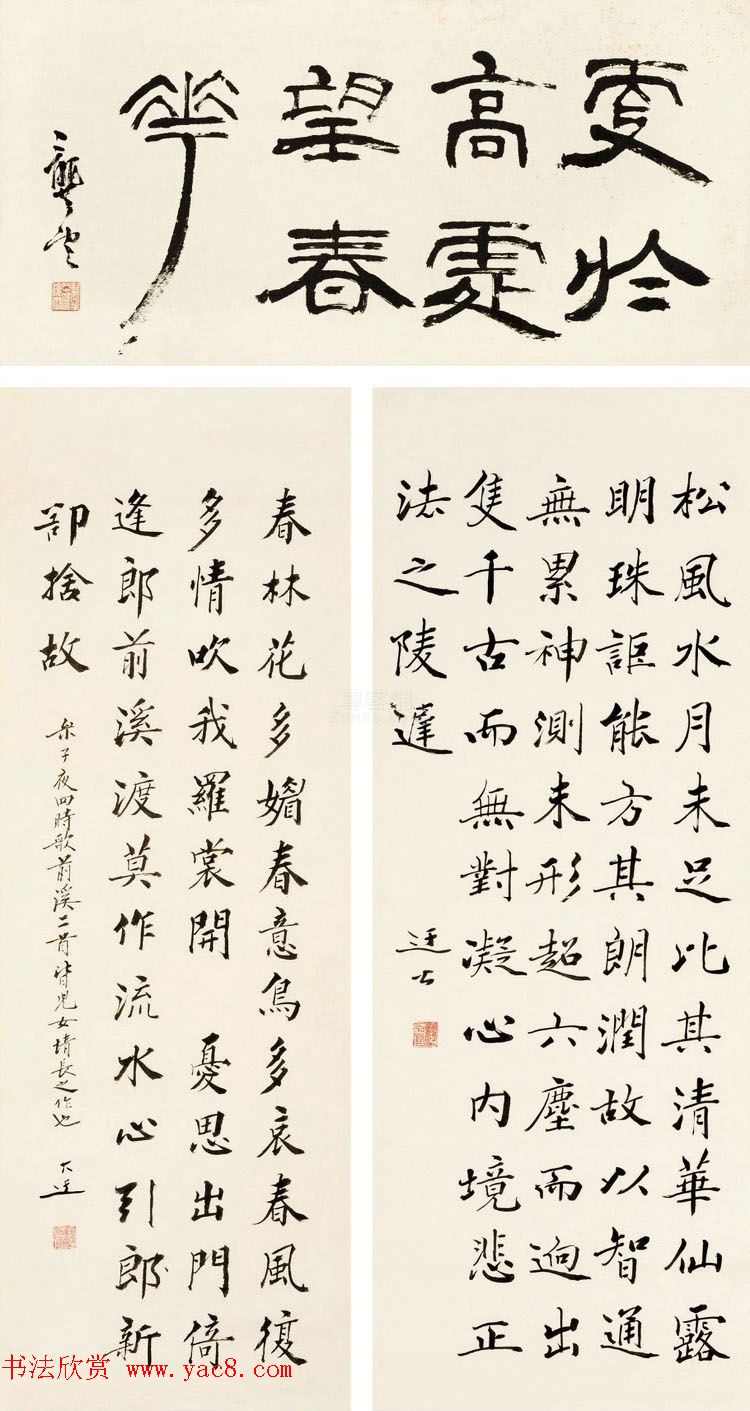 更於
高處
望春
華
龔望
松風水月未足比其清華仙露
明珠詎能方其朗潤故以智通
無累神測未形超六塵而迥出
隻千古而無對凝心內境悲正
法之陵遲
迂士
春林花多媚春意鳥多哀春風復
多情吹我羅裳開 憂思出門倚
逢郎前溪渡莫作流水心引郎新
卻捨故
樂子夜四時歌前溪二首皆兒女情長之作也
大迂
书法欣赏 www.yac8.com